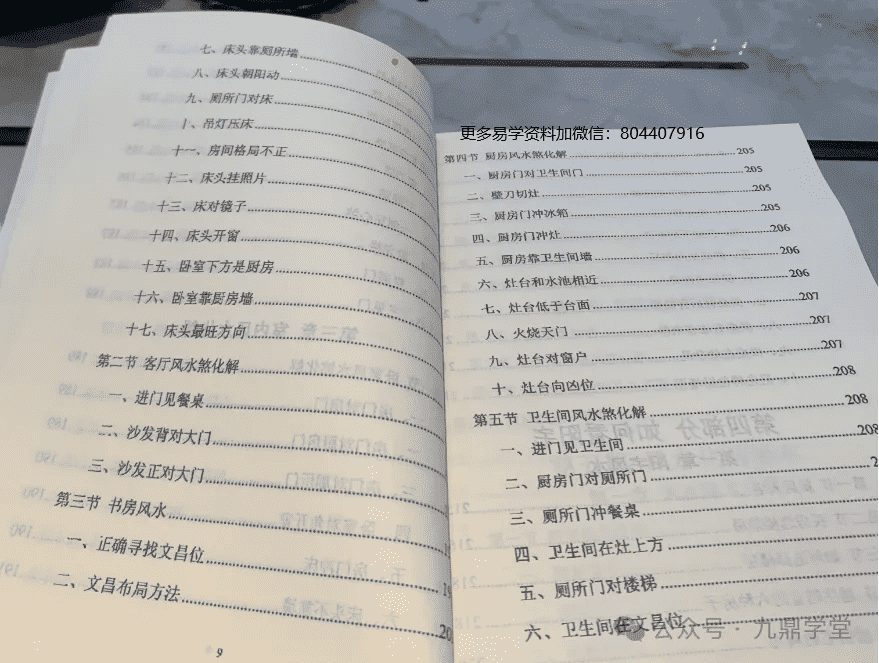 七、床头靠厕所墙
八、床头朝阳动
九、厕所门对床
十、吊灯压床
十一、房间格局不正
十二、床头挂照片
十三、床对镜子
十四、床头开窗
十五、卧室下方是厨房
十六、卧室靠厨房墙
十七、床头最旺方向
第二节 客厅风水煞化解
一、进门见餐桌
二、沙发背对大门
三、沙发正对大门
第三节 书房风水
一、正确寻找文昌位
二、文昌布局方法
9
更多易学资料加微信：804407916
第四节 厨房风水煞化解 205
一、厨房门对卫生间门 205
二、壁刀切灶 205
三、厨房门冲冰箱 205
四、厨房门冲灶 206
五、厨房靠卫生间墙 206
六、灶台和水池相近 206
七、灶台低于台面 207
八、火烧天门 207
九、灶台对窗户 207
十、灶台向凶位 208
第五节 卫生间风水煞化解 208
一、进门见卫生间 208
二、厨房门对厕所门
三、厕所门冲餐桌
四、卫生间在灶上方
五、厕所门对楼梯
六、卫生间在文昌位
公众号·九鼎学堂